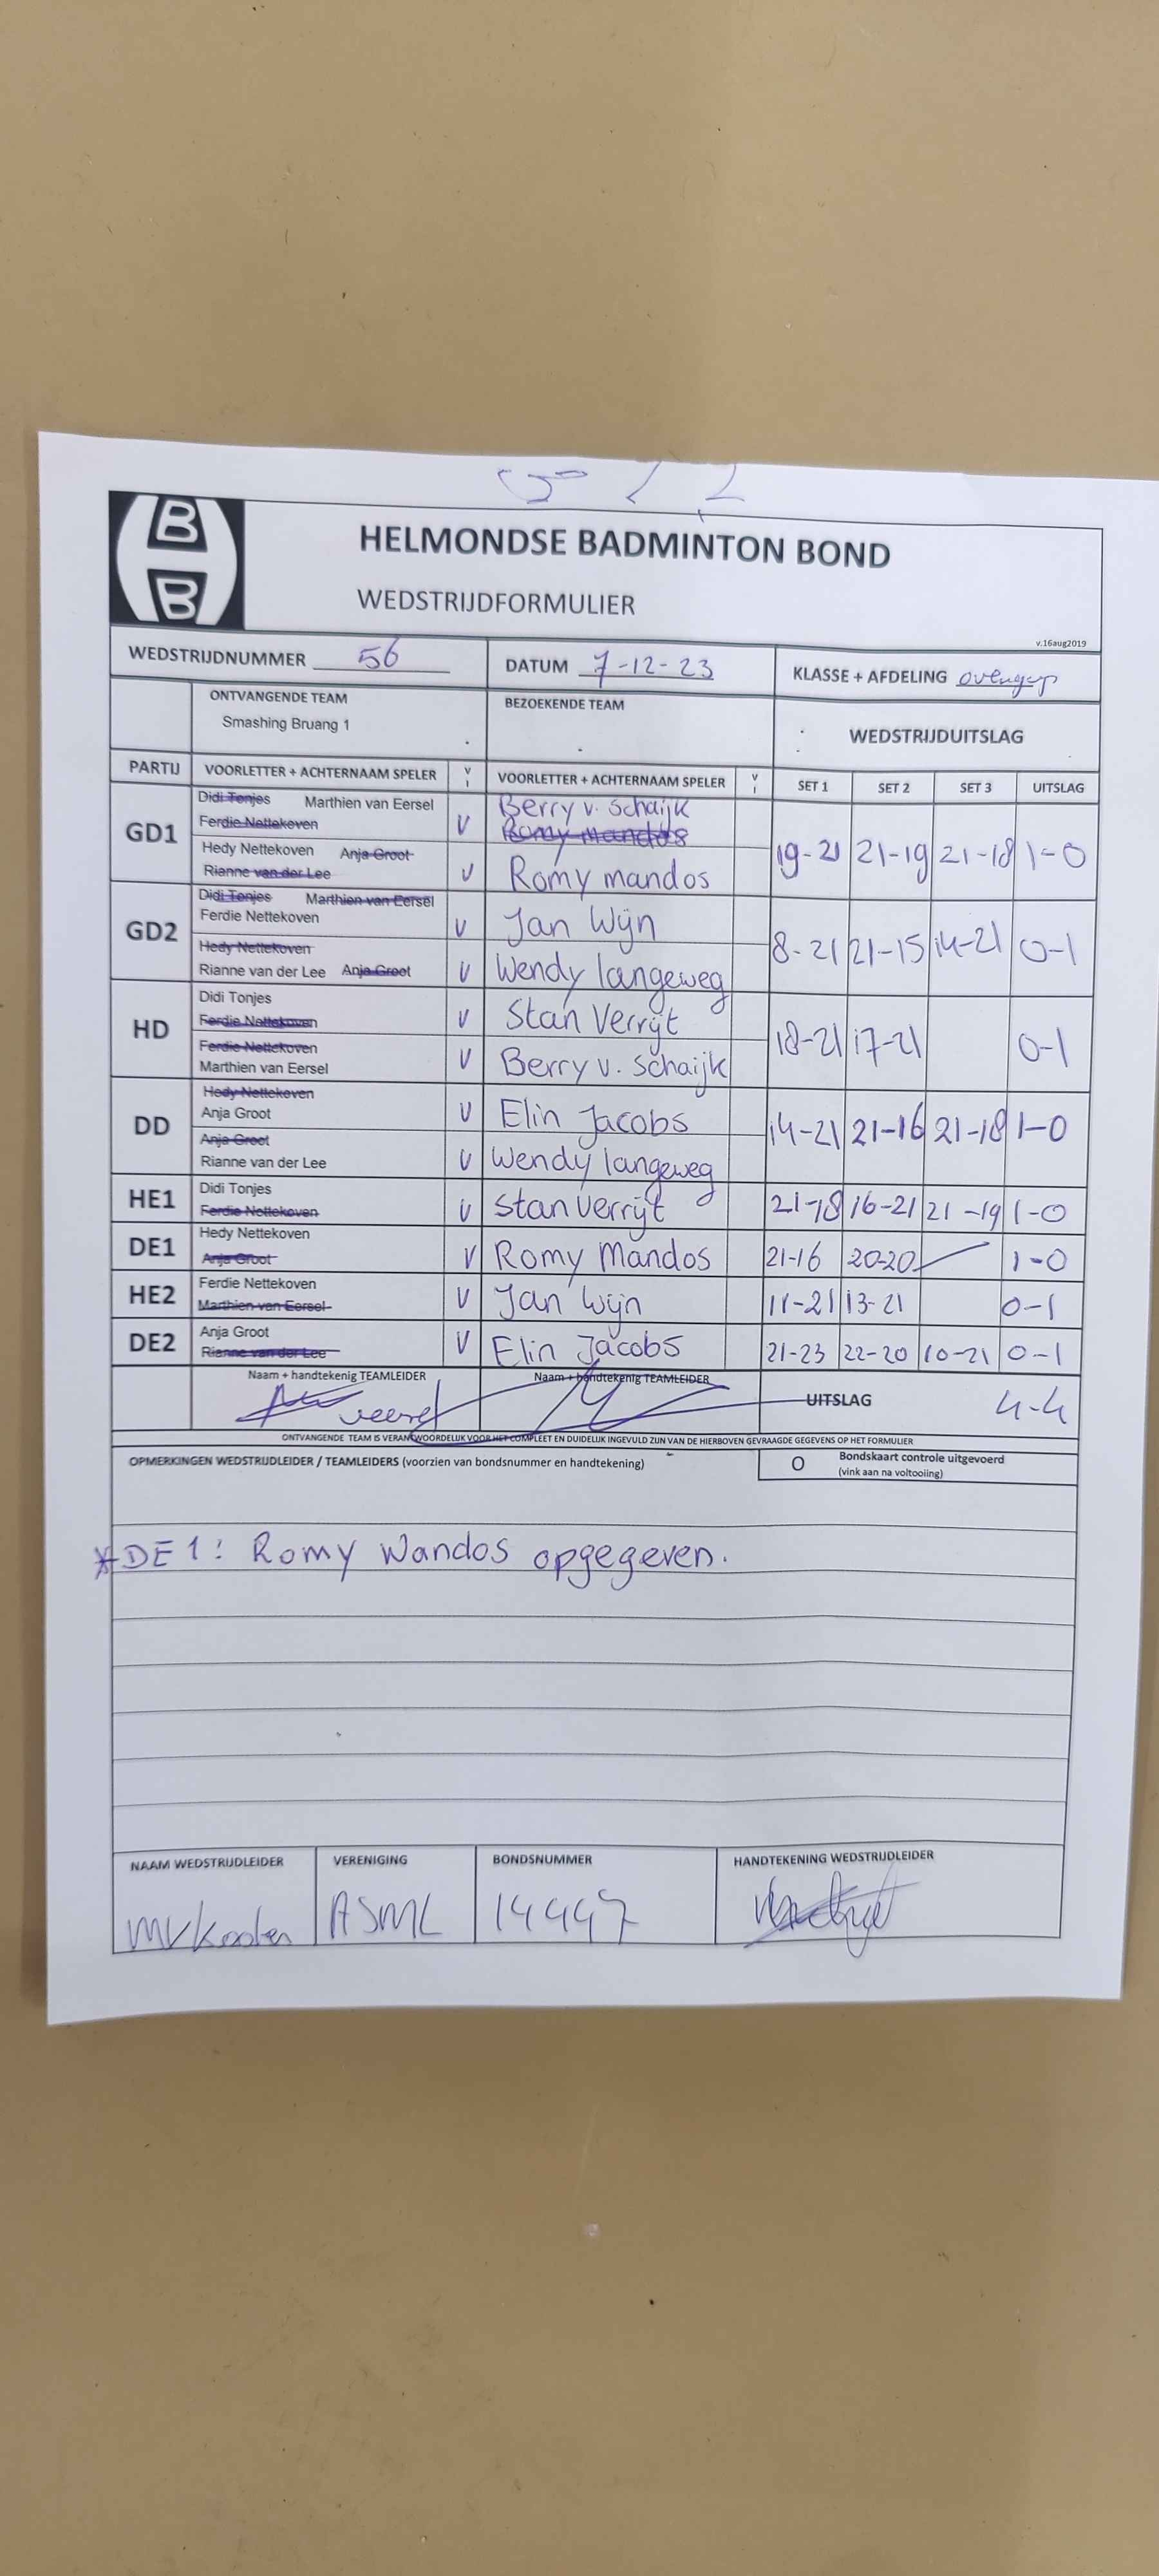 B
B
HELMONDSE BADMINTON BOND
WEDSTRIJDFORMULIER
v.16aug2019
WEDSTRIJDNUMMER 56
DATUM 7-12-23
KLASSE + AFDELING
ONTVANGENDE TEAM
Smashing Bruang 1
BEZOEKENDE TEAM
WEDSTRIJDUITSLAG
PARTIJ VOORLETTER + ACHTERNAAM SPELER V VOORLETTER + ACHTERNAAM SPELER V SET 1 SET 2 SET 3 UITSLAG
GD1
Didi Tonjes Marthien van Eersel
Ferdie Nettekoven V Berry v. Schaijk
Romy mandos
Hedy Nettekoven Anja Groot
Rianne van der Lee V Romy mandos
19-21 21-19 21-18 1-0
GD2
Didi Tonjes Marthien van Eersel
Ferdie Nettekoven V Jan Wijn
Hedy Nettekoven
Rianne van der Lee Anja Groot V Wendy langeweg
8-21 21-15 14-21 0-1
HD
Didi Tonjes
Ferdie Nettekoven V Stan Verrijt
Ferdie Nettekoven
Marthien van Eersel V Berry v. Schaijk
18-21 17-21 0-1
DD
Hedy Nettekoven
Anja Groot V Elin Jacobs
Anja Groot
Rianne van der Lee V Wendy langeweg
14-21 21-16 21-18 1-0
HE1
Didi Tonjes
Ferdie Nettekoven V Stan Verrijt 21-18 16-21 21-19 1-0
DE1
Hedy Nettekoven
Anja Groot V Romy Mandos 21-16 20-20 1-0
HE2
Ferdie Nettekoven
Marthien van Eersel V Jan Wijn 11-21 13-21 0-1
DE2
Anja Groot
Rianne van der Lee V Elin Jacobs 21-23 22-20 10-21 0-1
Naam + handtekenig TEAMLEIDER
Naam + handtekenig TEAMLEIDER
UITSLAG 4-4
ONTVANGENDE TEAM IS VERANTWOORDELIJK VOOR HET COMPLEET EN DUIDELIJK INGEVULD ZIJN VAN DE HIERBOVEN GEVRAAGDE GEGEVENS OP HET FORMULIER
OPMERKINGEN WEDSTRIJDLEIDER / TEAMLEIDERS (voorzien van bondsnummer en handtekening)
O Bondskaart controle uitgevoerd
(vink aan na voltooiing)
* DE 1: Romy Wandos opgegeven.
NAAM WEDSTRIJDLEIDER VERENIGING BONDSNUMMER HANDTEKENING WEDSTRIJDLEIDER
ASML 14447